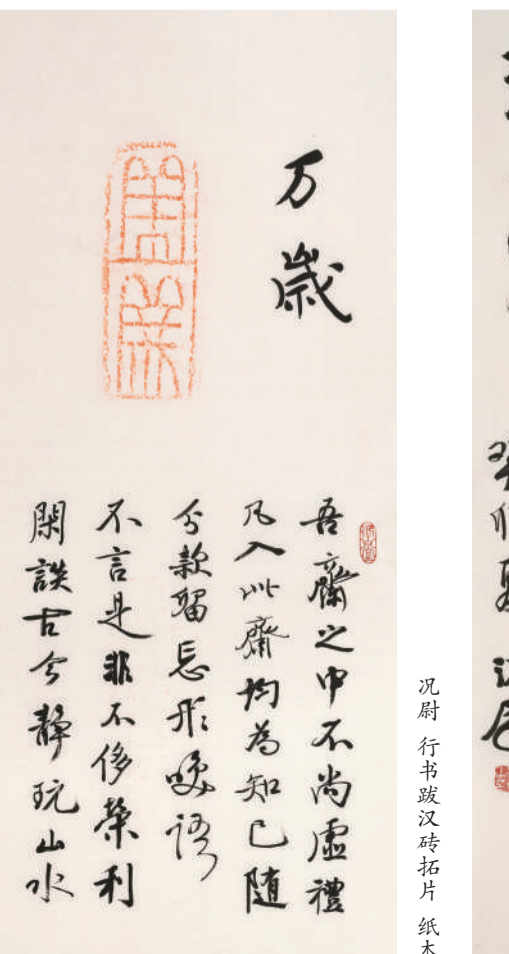 癸卯夏
万歲
萬歲
吾齋之中不尚虛禮
凡入此齋均為知己随
分款留忘形笑語
不言是非不侈榮利
閑談古今静玩山水
况尉 行书跋汉砖拓片 纸本